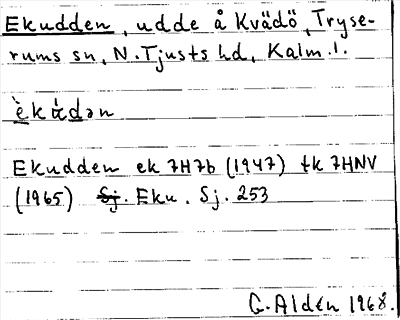 Ekudden, udde å Kvädö, Tryse-
rums sn, N. Tjusts hd, Kalm. l.
Ekudden ek 7H7b (1947) tk 7HNV
(1965) Sj. Eku. Sj. 253
G. Aldén 1968.